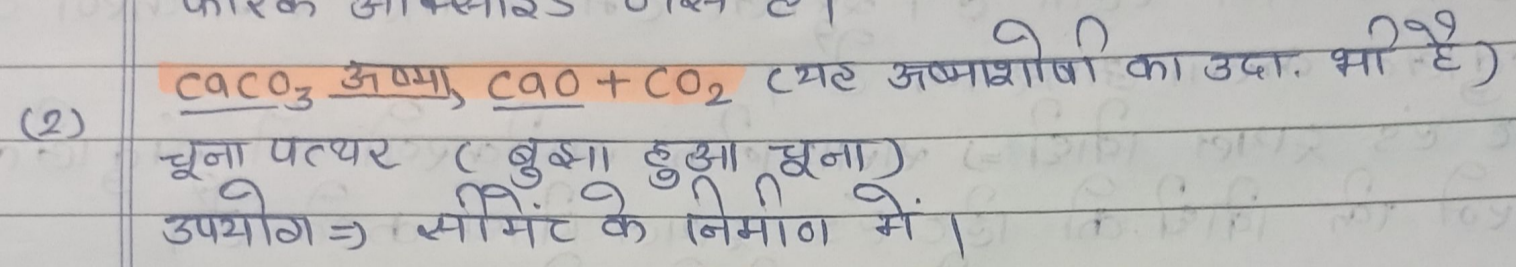 CaCO3 ऊष्मा, CaO + CO2 (यह ऊष्माशोषी का उदा. भी है)
(2)
चूना पत्थर (बुझा हुआ चूना)
उपयोग ⇒ सीमेंट के निर्माण में।